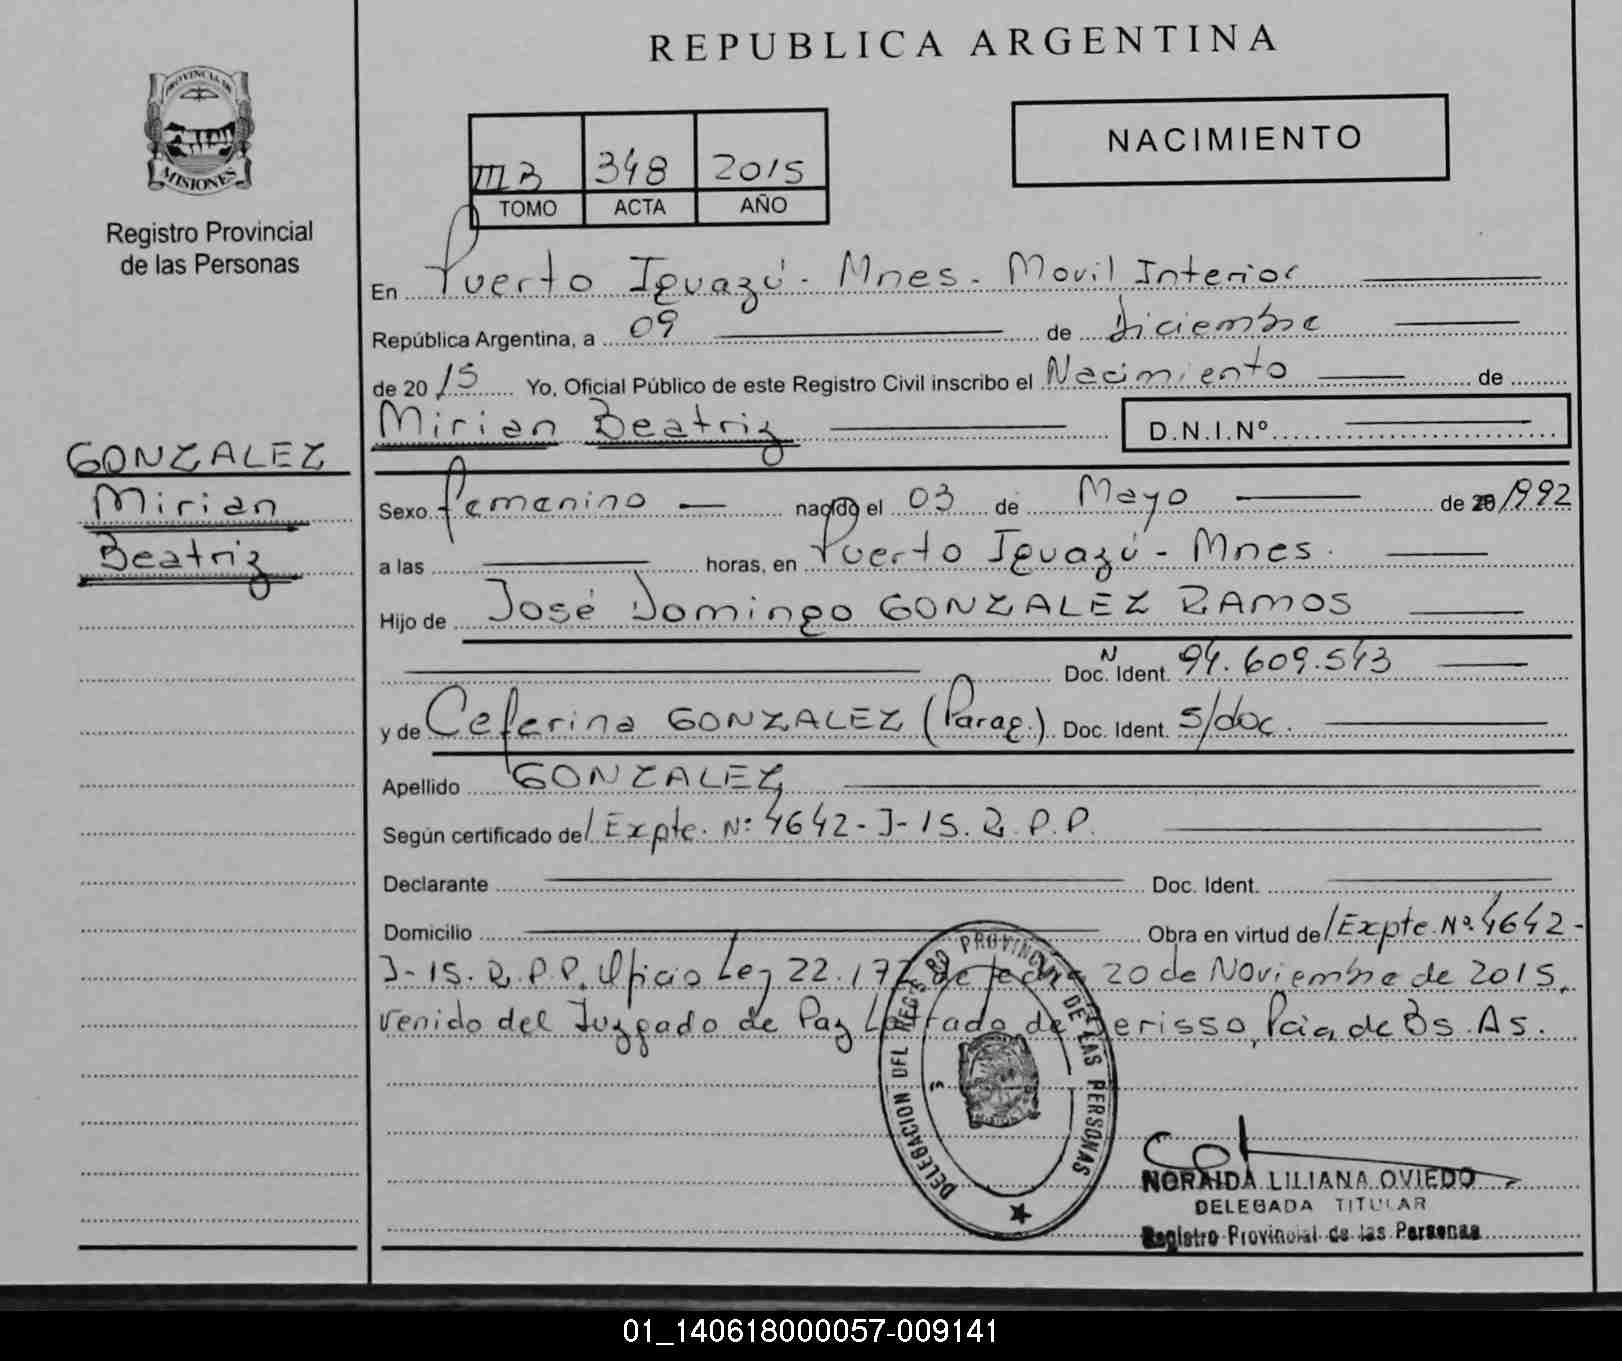 REPUBLICA ARGENTINA
PROVINCIA DE
MISIONES
Registro Provincial
de las Personas
III B 348 2015
TOMO ACTA AÑO
NACIMIENTO
En Puerto Iguazú - Mnes - Movil Interior
República Argentina, a 09 de Diciembre
de 20 15 Yo, Oficial Público de este Registro Civil inscribo el Nacimiento de
Mirian Beatriz D.N.I.Nº
GONZALEZ
Mirian
Beatriz
Sexo femenino nacido el 03 de Mayo de 1992
a las horas, en Puerto Iguazú - Mnes.
Hijo de José Domingo GONZALEZ RAMOS
Doc. N Ident. 94.609.543
y de Ceferina GONZALEZ (Parag.) Doc. Ident. s/doc.
Apellido GONZALEZ
Según certificado de/ Expte. Nº 4642-J-15. R.P.P.
Declarante Doc. Ident.
Domicilio Obra en virtud de/ Expte. Nº 4642-
J-15. R.P.P. Oficio Ley 22.172 de fecha 20 de Noviembre de 2015,
venido del Juzgado de Paz Letrado de Berisso, Pcia, de Bs. As.
DELEGACION DEL REGISTRO PROVINCIAL DE LAS PERSONAS
NORAIDA LILIANA OVIEDO
DELEGADA TITULAR
Registro Provincial de las Personas
01_140618000057-009141